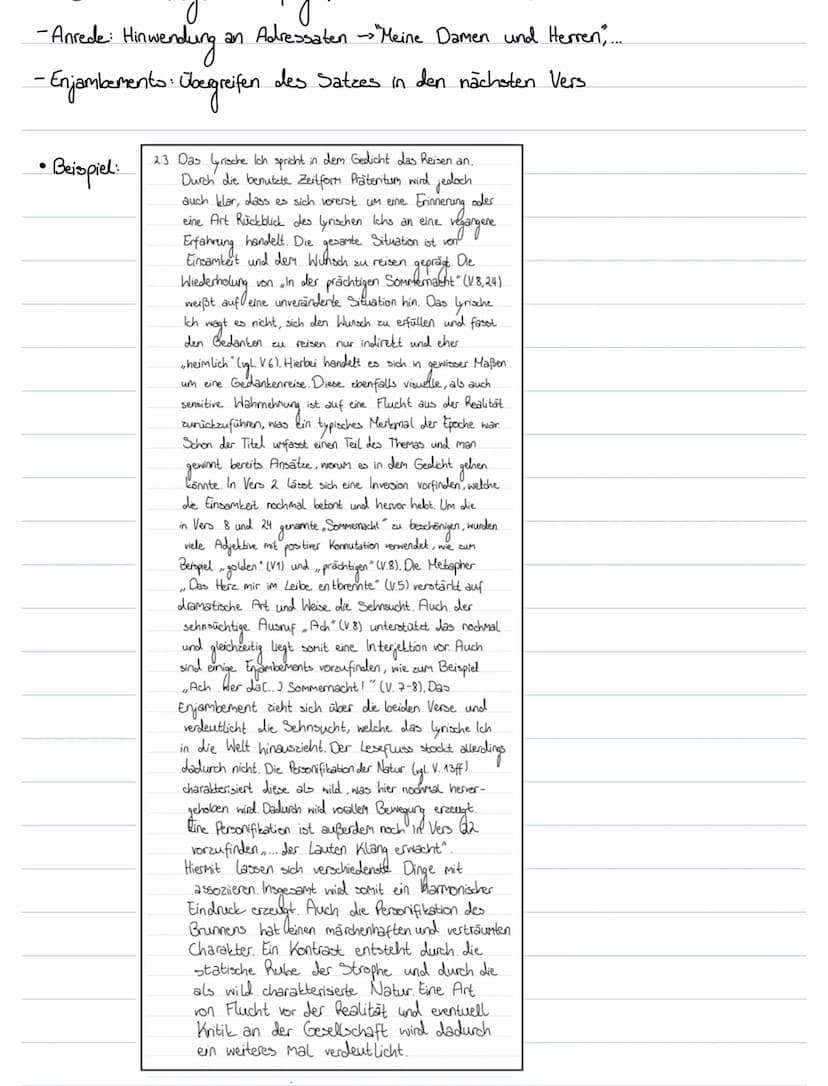 - Anrede: Hinwendung an Adressaten → "Meine Damen und Herren",...
- Enjambements: Übergreifen des Satzes in den nächsten Vers
• Beispiel:
2.3 Das lyrische Ich spricht in dem Gedicht das Reisen an.
Durch die benutzte Zeitform Präteritum wird jedoch
auch klar, dass es sich vorerst um eine Erinnerung oder
eine Art Rückblick des lyrischen Ichs an eine vergangene
Erfahrung handelt. Die gesamte Situation ist von
Einsamkeit und dem Wunsch zu reisen geprägt. Die
Wiederholung von „In der prächtigen Sommernacht" (V.8,24)
weißt auf eine unveränderte Situation hin. Das lyrische
Ich wagt es nicht, sich den Wunsch zu erfüllen und fasst
den Gedanken zu reisen nur indirekt und eher
„heimlich" (vgl. V 6). Hierbei handelt es sich in gewisser Maßen
um eine Gedankenreise. Diese ebenfalls visuelle, als auch
sensitive Wahrnehmung ist auf eine Flucht aus der Realität
zurückzuführen, was ein typisches Merkmal der Epoche war.
Schon der Titel umfasst einen Teil des Themas und man
gewinnt bereits Ansätze, worum es in dem Gedicht gehen
könnte. In Vers 2 lässt sich eine Inversion vorfinden, welche
die Einsamkeit nochmal betont und hervor hebt. Um die
in Vers 8 und 24 genannte „Sommernacht" zu beschönigen, wurden
viele Adjektive mit positiver Konnutation verwendet, wie zum
Beispiel „golden" (V1) und „prächtigen" (V.8). Die Metapher
„Das Herz mir im Leibe entbrennte" (V.5) verstärkt auf
dramatische Art und Weise die Sehnsucht. Auch der
sehnsüchtige Ausruf „Ach" (V.8) unterstützt das nochmal
und gleichzeitig liegt somit eine Interjektion vor. Auch
sind einige Enjambements vorzufinden, wie zum Beispiel
„Ach wer da[...] Sommernacht!" (V. 7-8). Das
Enjambement zieht sich über die beiden Verse und
verdeutlicht die Sehnsucht, welche das lyrische Ich
in die Welt hinauszieht. Der Lesefluss stockt allerdings
dadurch nicht. Die Personifikation der Natur (vgl. V. 13ff)
charakterisiert diese als wild, was hier nochmal hervor-
gehoben wird. Dadurch wird vorallem Bewegung erzeugt.
Eine Personifikation ist außerdem noch in Vers 22
vorzufinden „... der Lauten Klang erwacht".
Hiermit lassen sich verschiedenste Dinge mit
assoziieren. Insgesamt wird somit ein harmonischer
Eindruck erzeugt. Auch die Personifikation des
Brunnens hat einen märchenhaften und verträumten
Charakter. Ein Kontrast entsteht durch die
statische Ruhe der Strophe und durch die
als wild charakterisierte Natur. Eine Art
von Flucht vor der Realität und eventuell
Kritik an der Gesellschaft wird dadurch
ein weiteres Mal verdeutlicht.